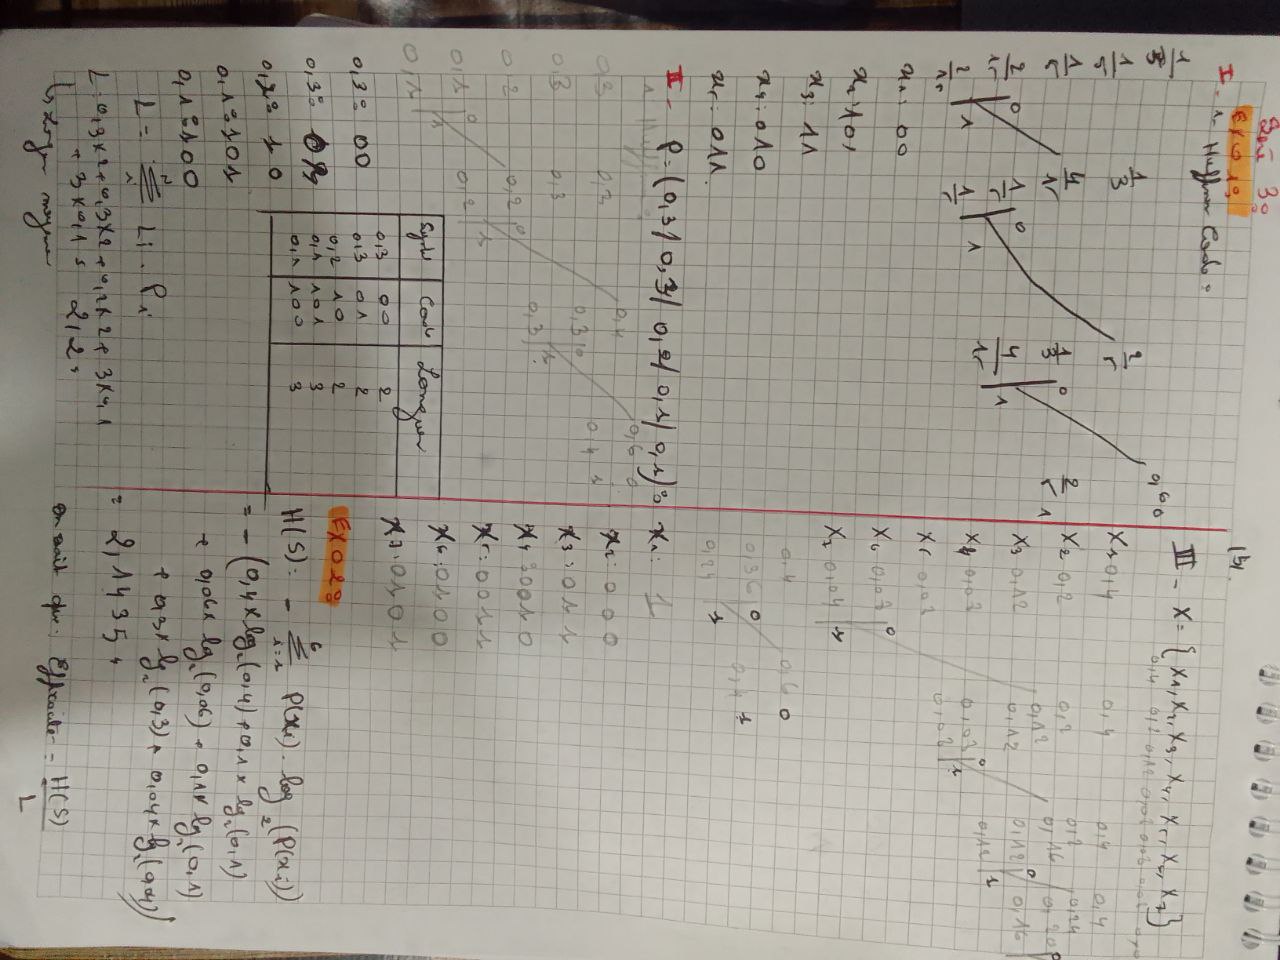 Série 3:
EXO 1:
I- 1- Huffman Code:
1/3
1/5 1/3 2/5 0,60 0
1/5 4/15 1/3 0 2/5 1
2/15 0 1/5 0 4/15 1
2/15 1 1/5 1
x1: 00
x2: 101
x3: 11
x4: 010
x5: 011
II- P=(0,3/ 0,3/ 0,2/ 0,1/ 0,1):
1. Huffman:
0,3 0,3 0,4 0,6 0
0,3 0,3 0,3 0 0,4 1
0,2 0,2 0 0,3 1
0,1 0 0,2 1
0,1 1
Symbl Code Longueur
0,3 00 2
0,3 01 2
0,2 10 2
0,1 101 3
0,1 100 3
0,3: 00
0,3: 01
0,2: 10
0,1: 101
0,1: 100
L = Σ Li . Pi
L: 0,3x2+0,3x2+0,2x2+3x0,1
+ 3x0,1 = 2,2
Longeur moyenne
III - X= { X1, X2, X3, X4, X5, X6, X7 }
X1 0,4 0,4 0,4 0,4
X2 0,2 0,2 0,2 0,24
X3 0,12 0,12 0,16 0,20 0
X4 0,08 0,12 0,12 0 0,16
X5 0,08 0,08 0 0,12 1
X6 0,08 0 0,08 1
X7 0,04 1
0,4 0,6 0
0,36 0 0,4 1
0,24 1
x1: 1
x2: 000
x3: 011
x4: 0010
x5: 0011
x6: 0100
x7: 0101
EXO 2:
H(S): - Σ P(xi) . log2 (P(xi))
= - (0,4 x log2(0,4) + 0,1 x log2(0,1)
+ 0,06x log2(0,06) + 0,1x log2(0,1)
+ 0,3x log2(0,3) + 0,04x log2(0,04))
= 2,1435.
On sait que: Efficacité = H(S)/L